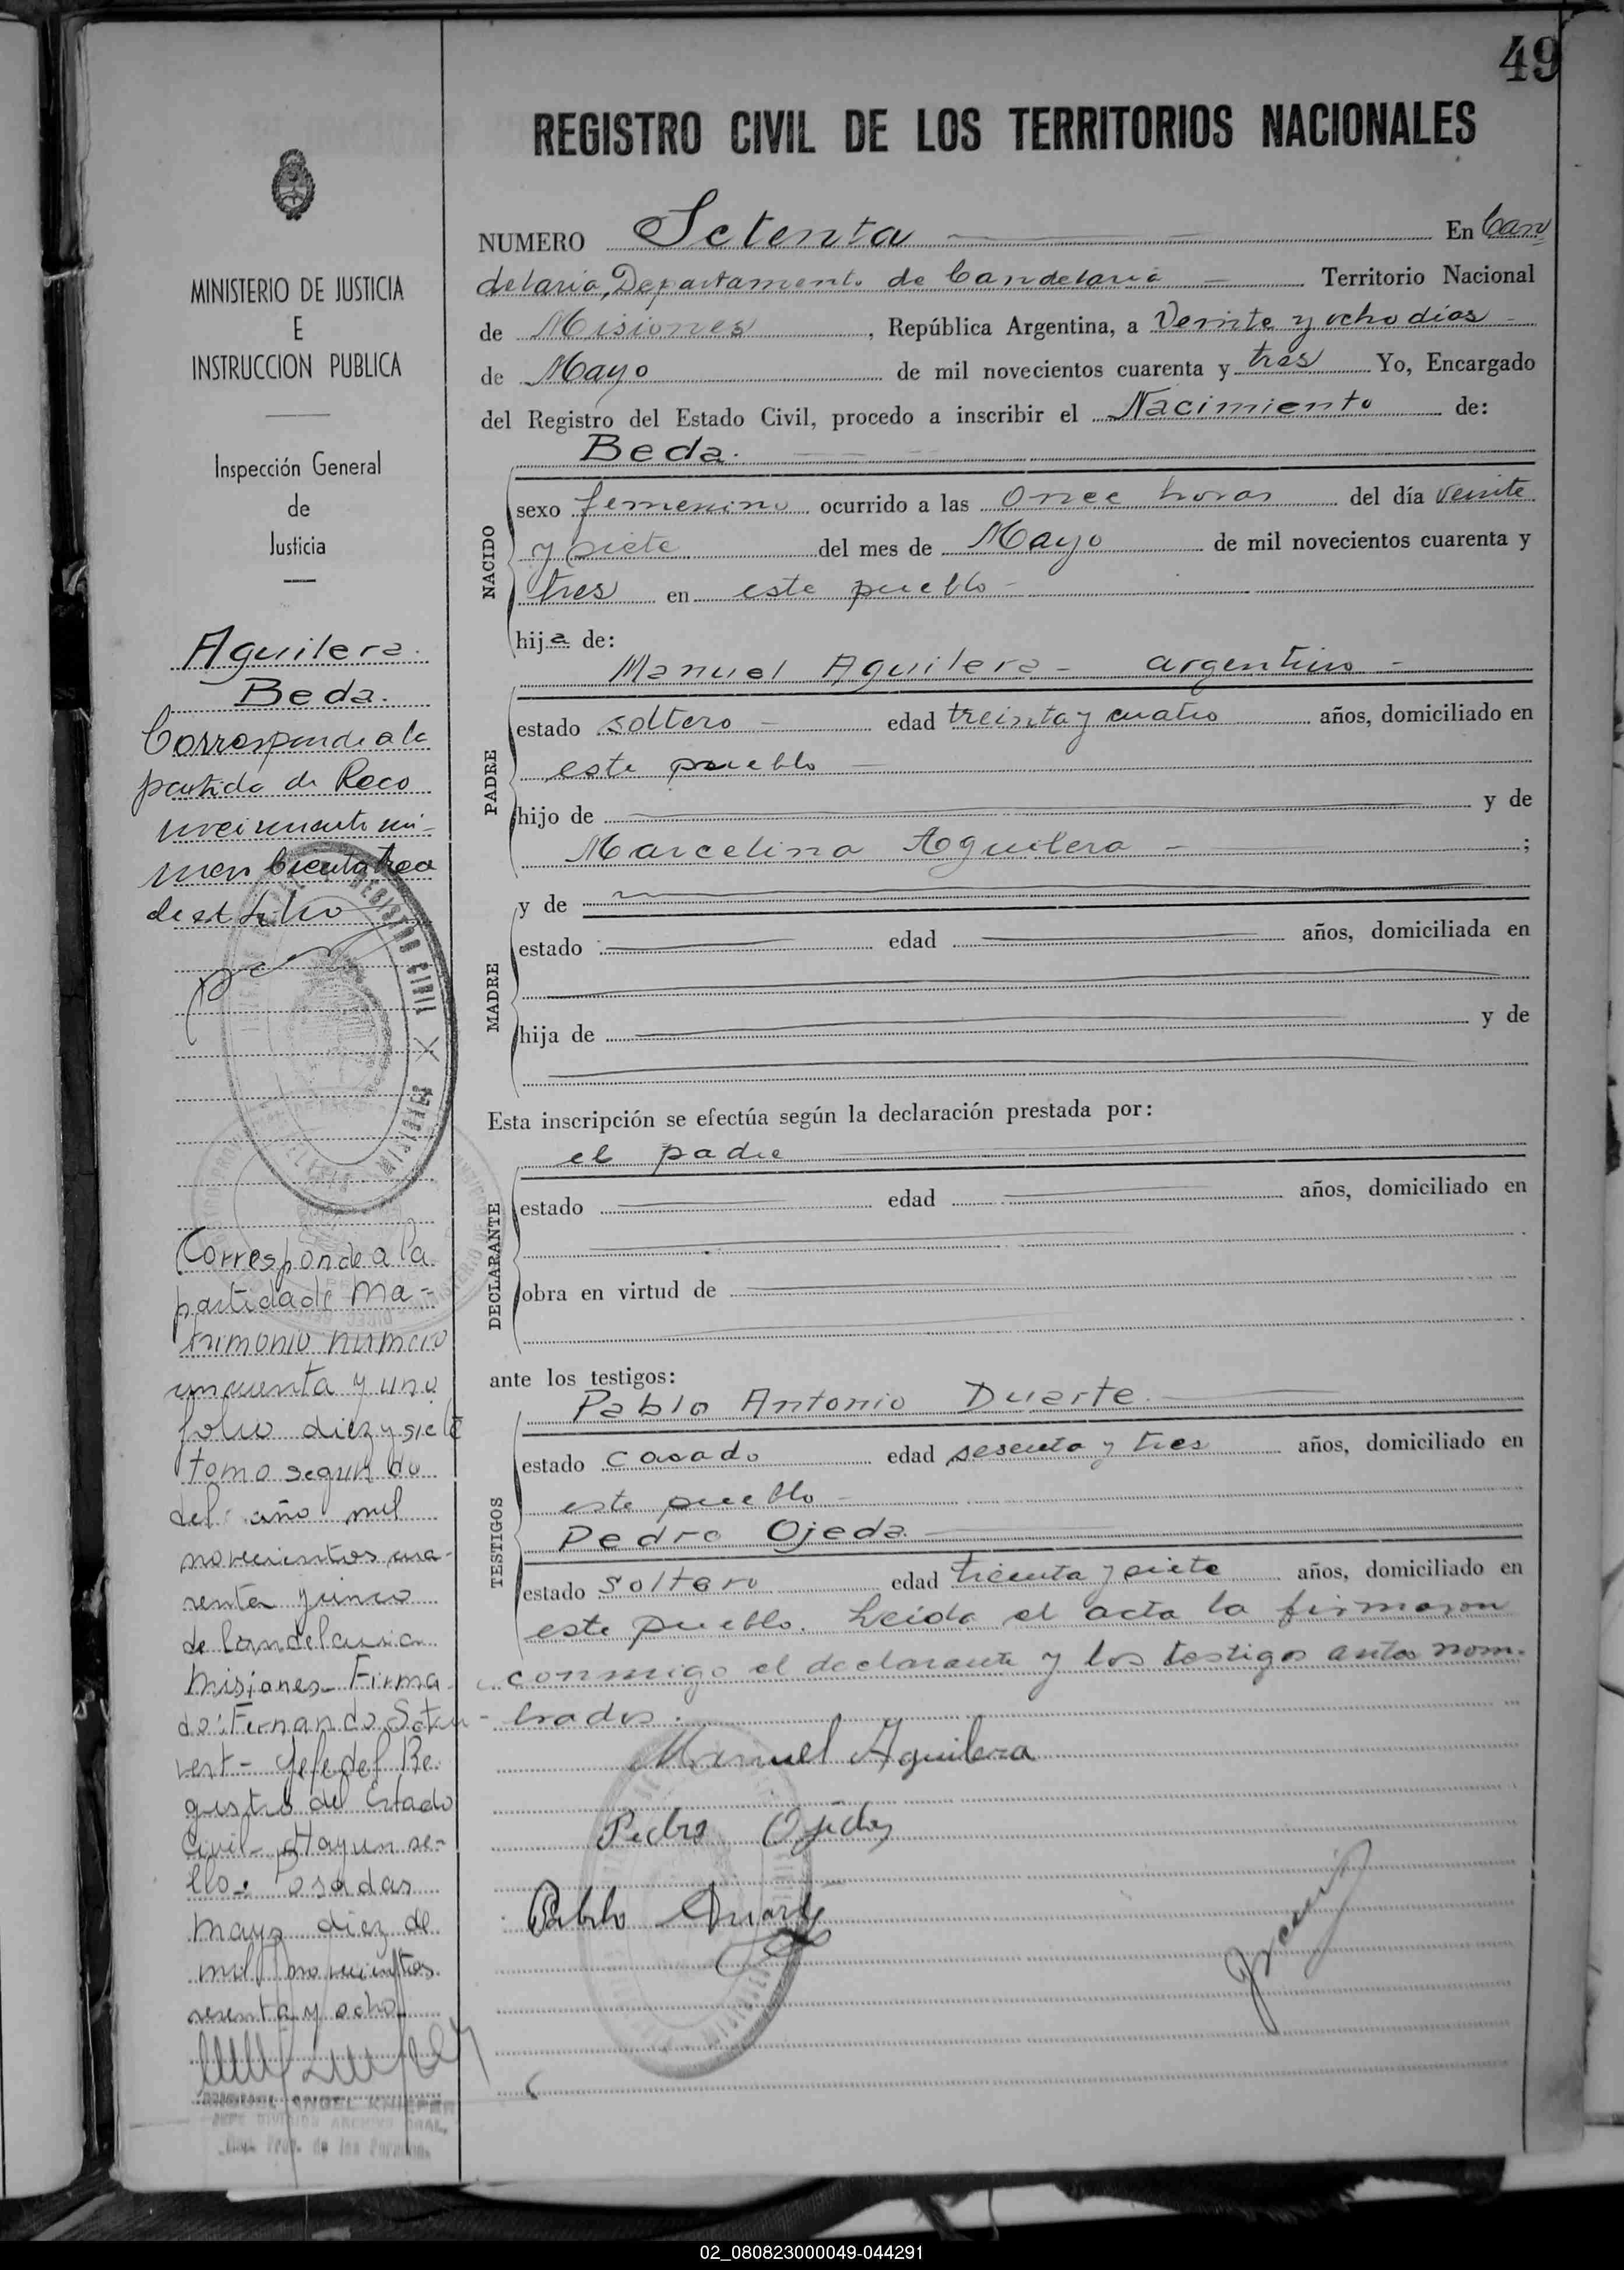 49
REGISTRO CIVIL DE LOS TERRITORIOS NACIONALES
NUMERO Setenta En Can
delaria, Departamento de Candelaria Territorio Nacional
de Misiones, República Argentina, a Veinte y ocho días
de Mayo de mil novecientos cuarenta y tres Yo, Encargado
del Registro del Estado Civil, procedo a inscribir el Nacimiento de:
Beda.
NACIDO
sexo femenino ocurrido a las Once horas del día veinte
y siete del mes de Mayo de mil novecientos cuarenta y
tres en este pueblo
hija de:
Manuel Aguilera - argentino -
PADRE
estado soltero edad treinta y cuatro años, domiciliado en
este pueblo
hijo de y de
Marcelina Aguilera ;
y de
MADRE
estado edad años, domiciliada en
hija de y de
Esta inscripción se efectúa según la declaración prestada por:
el padre
DECLARANTE
estado edad años, domiciliado en
obra en virtud de
ante los testigos:
Pablo Antonio Duarte
TESTIGOS
estado casado edad sesenta y tres años, domiciliado en
este pueblo
Pedro Ojeda
estado soltero edad treinta y siete años, domiciliado en
este pueblo. Leída el acta la firmaron
conmigo el declarante y los testigos antes nom-
brados.
Manuel Aguilera
Pedro Ojeda
Pablo Duarte
MINISTERIO DE JUSTICIA
E
INSTRUCCION PUBLICA
Inspección General
de
Justicia
Aguilera.
Beda.
Corresponde a la
partida de Reco
nocimiento nú-
mero
de est
REGISTRO CIVIL
Corresponde a la
partida de Ma-
trimonio numero
cincuenta y uno
folio diez y siete
tomo segundo
del año mil
novecientos cua-
renta y cinco
de Candelaria
Misiones - Firma
do: Fernando
vert - Jefe del Re
gistro del Estado
Civil - Hay un se-
llo. Posadas
mayo diez de
mil novecientos
sesenta y ocho.
ANGEL
JEFE DIVISION ARCHIVO GRAL.
Prov. de las Personas
02_080823000049-044291